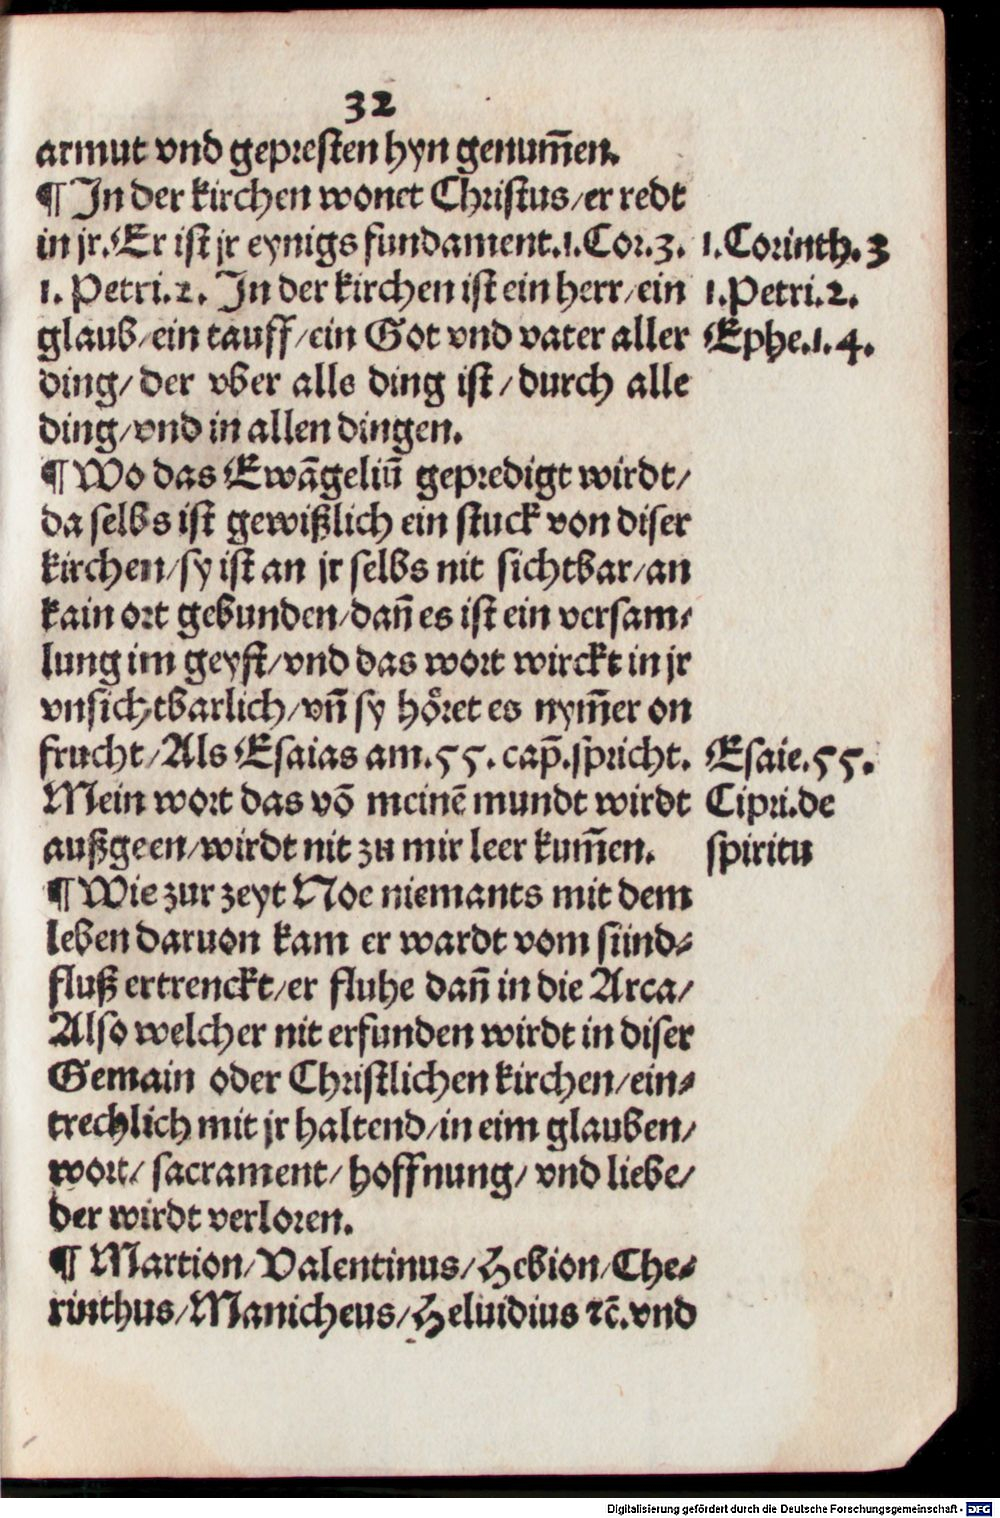 32
armut vnd gepresten hyn genum̄en.
¶ In der kirchen wonet Christus/er redt
in jr. Er ist jr eynigs fundament.1.Cor.3.
1. Petri.2. In der kirchen ist ein herr/ein
glaub/ein tauff/ein Got vnd vater aller
ding/ der vber alle ding ist/durch alle
ding/vnd in allen dingen.
¶ Wo das Ewāgeliū gepredigt wirdt/
da selbs ist gewißlich ein stuck von diser
kirchen/sy ist an jr selbs nit sichtbar/an
kain ort gebunden/dañ es ist ein versam⸗
lung im geyst/vnd das wort wirckt in jr
vnsichtbarlich/vñ sy hoͤret es nym̄er on
frucht/Als Esaias am.55.cap̄.spricht.
Mein wort das vō meinē mundt wirdt
außgeen/wirdt nit zu mir leer kum̄en.
¶ Wie zur zeyt Noe niemants mit dem
leben daruon kam er wardt vom sünd⸗
fluß ertrenckt/er fluhe dañ in die Arca/
Also welcher nit erfunden wirdt in diser
Gemain oder Christlichen kirchen/ein⸗
trechlich mit jr haltend/in eim glauben/
wort/ sacrament/ hoffnung/ vnd liebe/
der wirdt verloren.
¶ Martion/Valentinus/Hebion/Che⸗
rinthus/Manicheus/Heluidius ꝛc̄.vnd
1.Corinth.3
1.Petri.2.
Ephe.1.4.
Esaie.55.
Cipri.de
spiritu
Digitalisierung gefördert durch die Deutsche Forschungsgemeinschaft - DFG